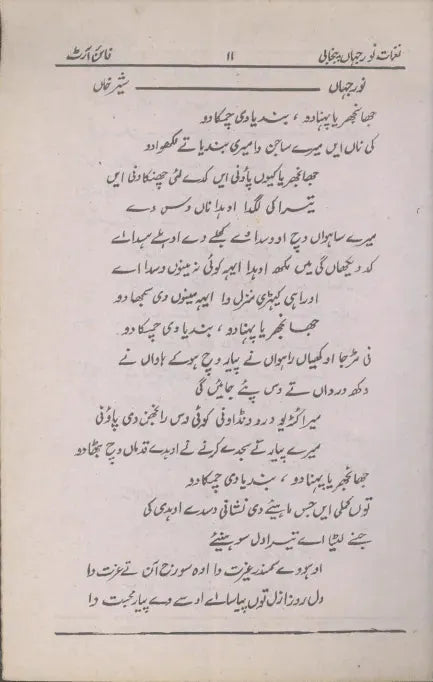 نغمات نور جہاں پنجابی ۱۱ فائن آرٹ
نور جہاں ——— مشیر خاں
جھانجھریا پہنا دو ، بندیا دی چمکا دو
کی ناں ایں میرے ساجن دا میری بندیا تے لکھوا دو
جھانجھریا کیوں پاؤنی ایں کدے لئی چھنکاونی ایں
تیرا کی لگدا اوہدا ناں دس دے
میرے ساہواں وچ او وسدا وے بھلے وے اوہلے سدا اے
کد دیکھاں گی میں مکھ اوہدا ایہہ کوئی نہ مینوں دسدا اے
اوراہی کیہڑی منزل دا ایہہ مینوں دی سمجھا دو
جھانجھریا پہنا دو ، بندیا دی چمکا دو
نی مڑ جا اوکھیاں راہواں نے پیار وچ ہوکے ہاواں نے
دکھ درداں تے وس پئے جائیں گی
میرا کڑیو درد ونڈاونی کوئی دس رانجھن دی پاؤنی
میرے پیار تے سجدے کرنے نے اوہدے قدماں وچ بٹھا دو
جھانجھریا پہنا دو ، بندیا دی چمکا دو
توں کھلی ایں جس ماہیئے دی نشانی دسدے اوہدی کی
جنے لٹیا اے تیرا دل سوہنیئے
اوہووے سمندر عزت دا اوہ سورج آن تے عزت دا
دل روز ازل توں پیاسا اے اوسے دے پیار محبت دا